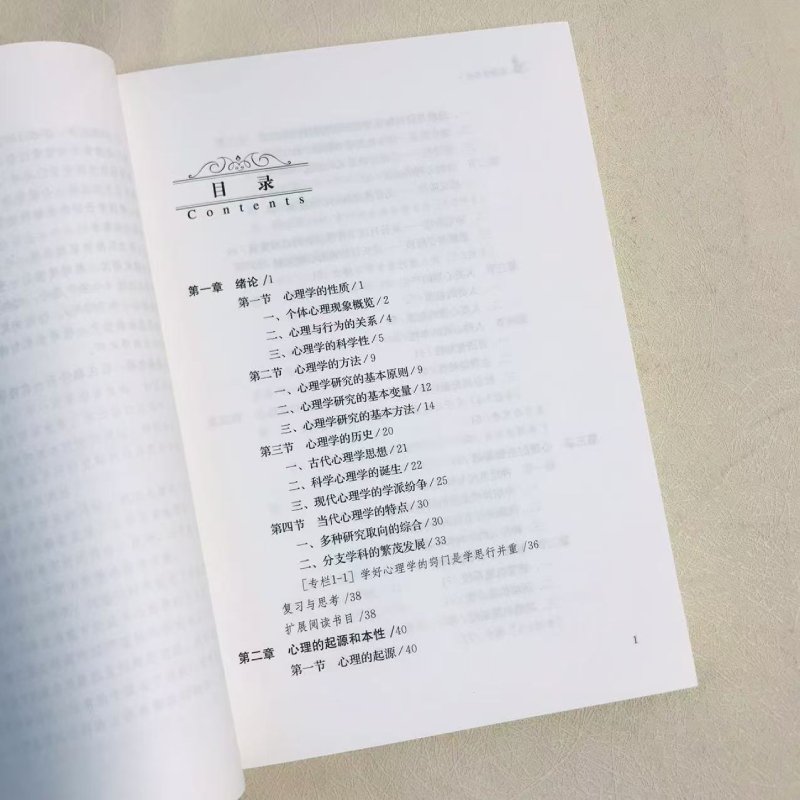 目 录
Contents
第一章 绪论 /1
第一节 心理学的性质 /1
一、个体心理现象概览 /2
二、心理与行为的关系 /4
三、心理学的科学性 /5
第二节 心理学的方法 /9
一、心理学研究的基本原则 /9
二、心理学研究的基本变量 /12
三、心理学研究的基本方法 /14
第三节 心理学的历史 /20
一、古代心理学思想 /21
二、科学心理学的诞生 /22
三、现代心理学的学派纷争 /25
第四节 当代心理学的特点 /30
一、多种研究取向的综合 /30
二、分支学科的繁茂发展 /33
［专栏1-1］学好心理学的窍门是学思行并重 /36
复习与思考 /38
扩展阅读书目 /38
第二章 心理的起源和本性 /40
第一节 心理的起源 /40
1